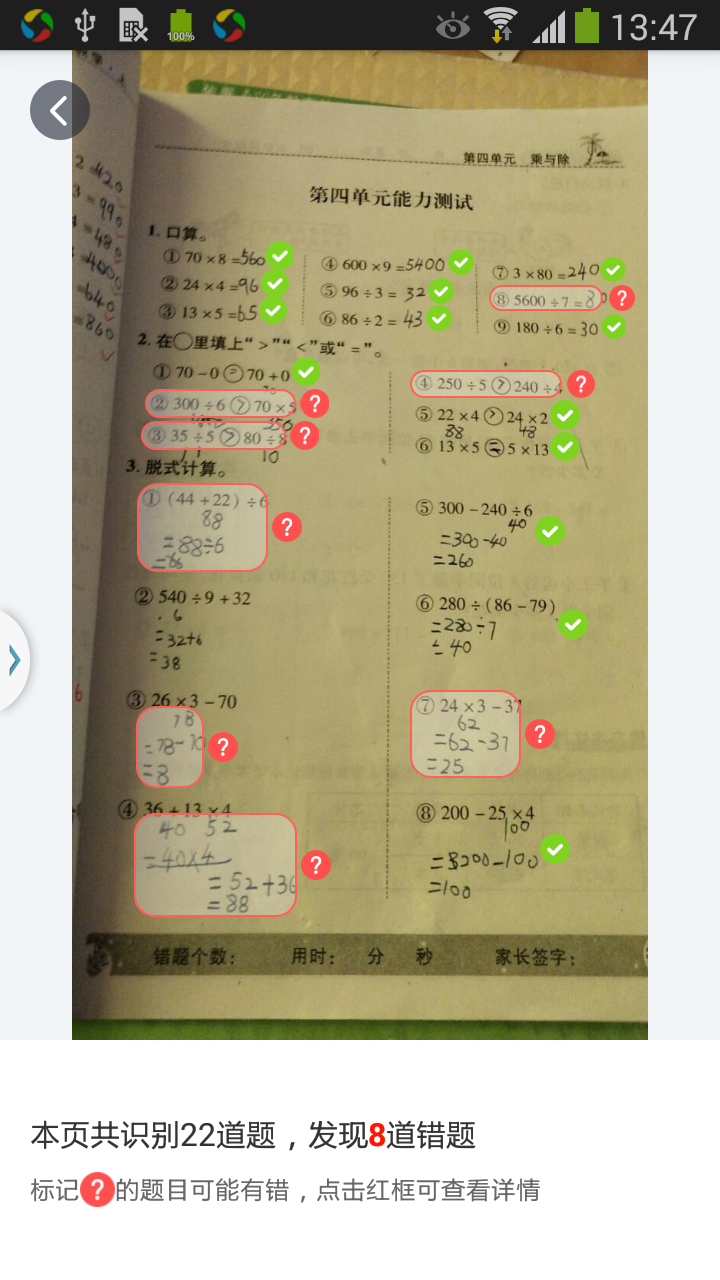 100%
13:47
第四单元 乘与除
第四单元能力测试
1. 口算。
① 70 × 8 =560
② 24 × 4 =96
③ 13 × 5 =65
④ 600 × 9 =5400
⑤ 96 ÷ 3 = 32
⑥ 86 ÷ 2 = 43
⑦ 3 × 80 =240
⑧ 5600 ÷ 7 =80
⑨ 180 ÷ 6 =30
2. 在○里填上“>”“<”或“=”。
① 70 - 0 = 70 + 0
② 300 ÷ 6 > 70 × 5
350
③ 35 ÷ 5 > 80 ÷ 8
10
④ 250 ÷ 5 > 240 ÷ 4
⑤ 22 × 4 > 24 × 2
88 48
⑥ 13 × 5 = 5 × 13
3. 脱式计算。
① (44 + 22) ÷ 6
88
=88÷6
=66
② 540 ÷ 9 + 32
6
=32+6
=38
③ 26 × 3 - 70
78
=78-70
=8
④ 36 + 13 × 4
40 52
=40×4
=52+36
=88
⑤ 300 - 240 ÷ 6
40
=300-40
=260
⑥ 280 ÷ (86 - 79)
=280÷7
=40
⑦ 24 × 3 - 37
62
=62-37
=25
⑧ 200 - 25 × 4
100
=200-100
=100
错题个数： 用时： 分 秒 家长签字：
2=420
3=990
=480
=4000
=640
=860
6
本页共识别22道题，发现8道错题
标记?的题目可能有错，点击红框可查看详情